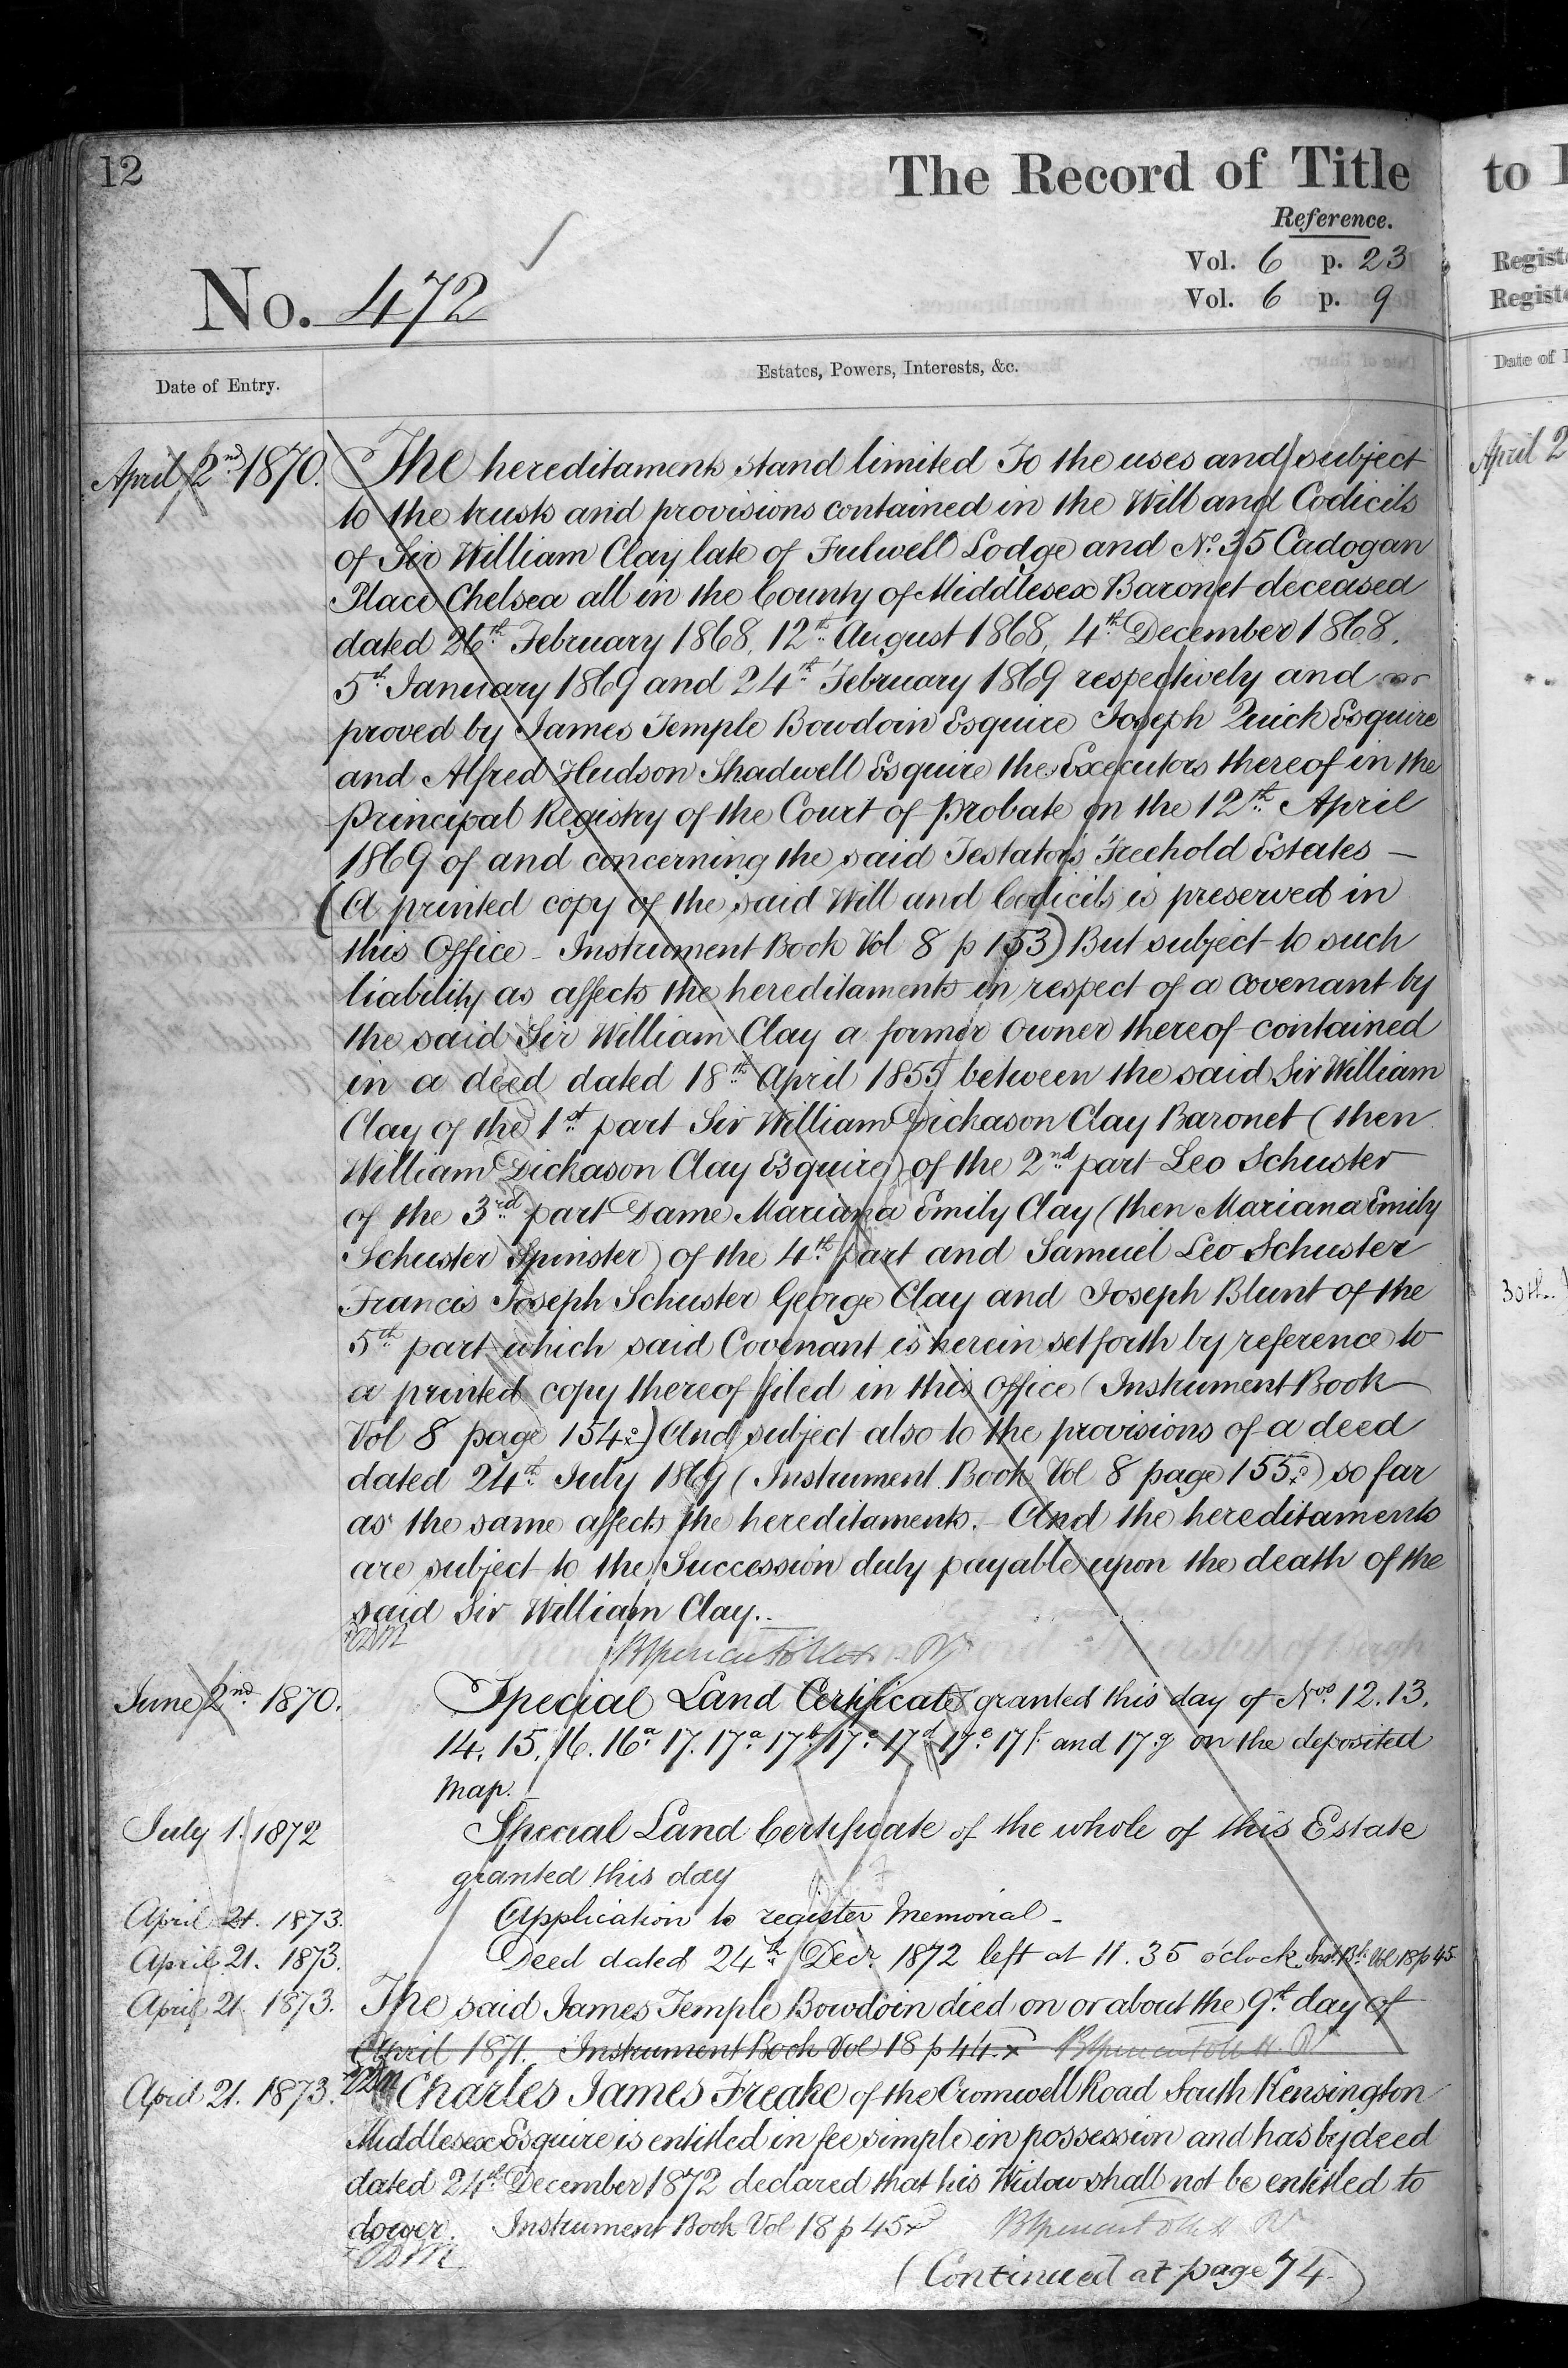 12
The Record of Title
to
Reference.
Vol. 6 p. 23
Vol. 6 p. 9
No. 472
Date of Entry.
Estates, Powers, Interests, &c.
April 2nd 1870.
The hereditaments stand limited To the uses and subject
to the trusts and provisions contained in the Will and Codicils
of Sir William Clay late of Fulwell Lodge and No. 35 Cadogan
Place Chelsea all in the County of Middlesex Baronet deceased
dated 26th February 1868, 12th August 1868, 4th December 1868,
5th January 1869 and 24th February 1869 respectively and
proved by James Temple Bowdoin Esquire Joseph Quick Esquire
and Alfred Hudson Shadwell Esquire the Executors thereof in the
principal Registry of the Court of Probate on the 12th April
1869 of and concerning the said Testator's Freehold Estates —
(A printed copy of the said Will and Codicils is preserved in
this Office - Instrument Book Vol 8 p 153) But subject to such
liability as affects the hereditaments in respect of a covenant by
the said Sir William Clay a former Owner thereof contained
in a deed dated 18th April 1855 between the said Sir William
Clay of the 1st part Sir William Dickason Clay Baronet (then
William Dickason Clay Esquire) of the 2nd part Leo Schuster
of the 3rd part Dame Mariana Emily Clay (then Mariana Emily
Schuster Spinster) of the 4th part and Samuel Leo Schuster
Francis Joseph Schuster George Clay and Joseph Blunt of the
5th part which said Covenant is herein set forth by reference to
a printed copy thereof filed in this Office (Instrument Book
Vol 8 page 154) And subject also to the provisions of a deed
dated 24th July 1869 (Instrument Book Vol 8 page 155) so far
as the same affects the hereditaments. - And the hereditaments
are subject to the Succession duty payable upon the death of the
said Sir William Clay.
June 2nd 1870.
Special Land Certificate granted this day of Nos. 12. 13.
14. 15. 16. 16a 17. 17a 17b 17c 17d 17e 17f and 17g on the deposited
map.
July 1. 1872
Special Land Certificate of the whole of this Estate
granted this day
April 21. 1873.
Application to register Memorial -
April 21. 1873.
Deed dated 24th Decr. 1872 left at 11.35 o'clock Inst. Bk. Vol 18 p 45
April 21. 1873.
The said James Temple Bowdoin died on or about the 9th day of
April 1871. Instrument Book Vol 18 p 44.
April 21. 1873.
Charles James Freake of the Cromwell Road South Kensington
Middlesex Esquire is entitled in fee simple in possession and has by deed
dated 24th December 1872 declared that his Widow shall not be entitled to
dower. Instrument Book Vol 18 p 45
(Continued at page 74.)
April 2
30th